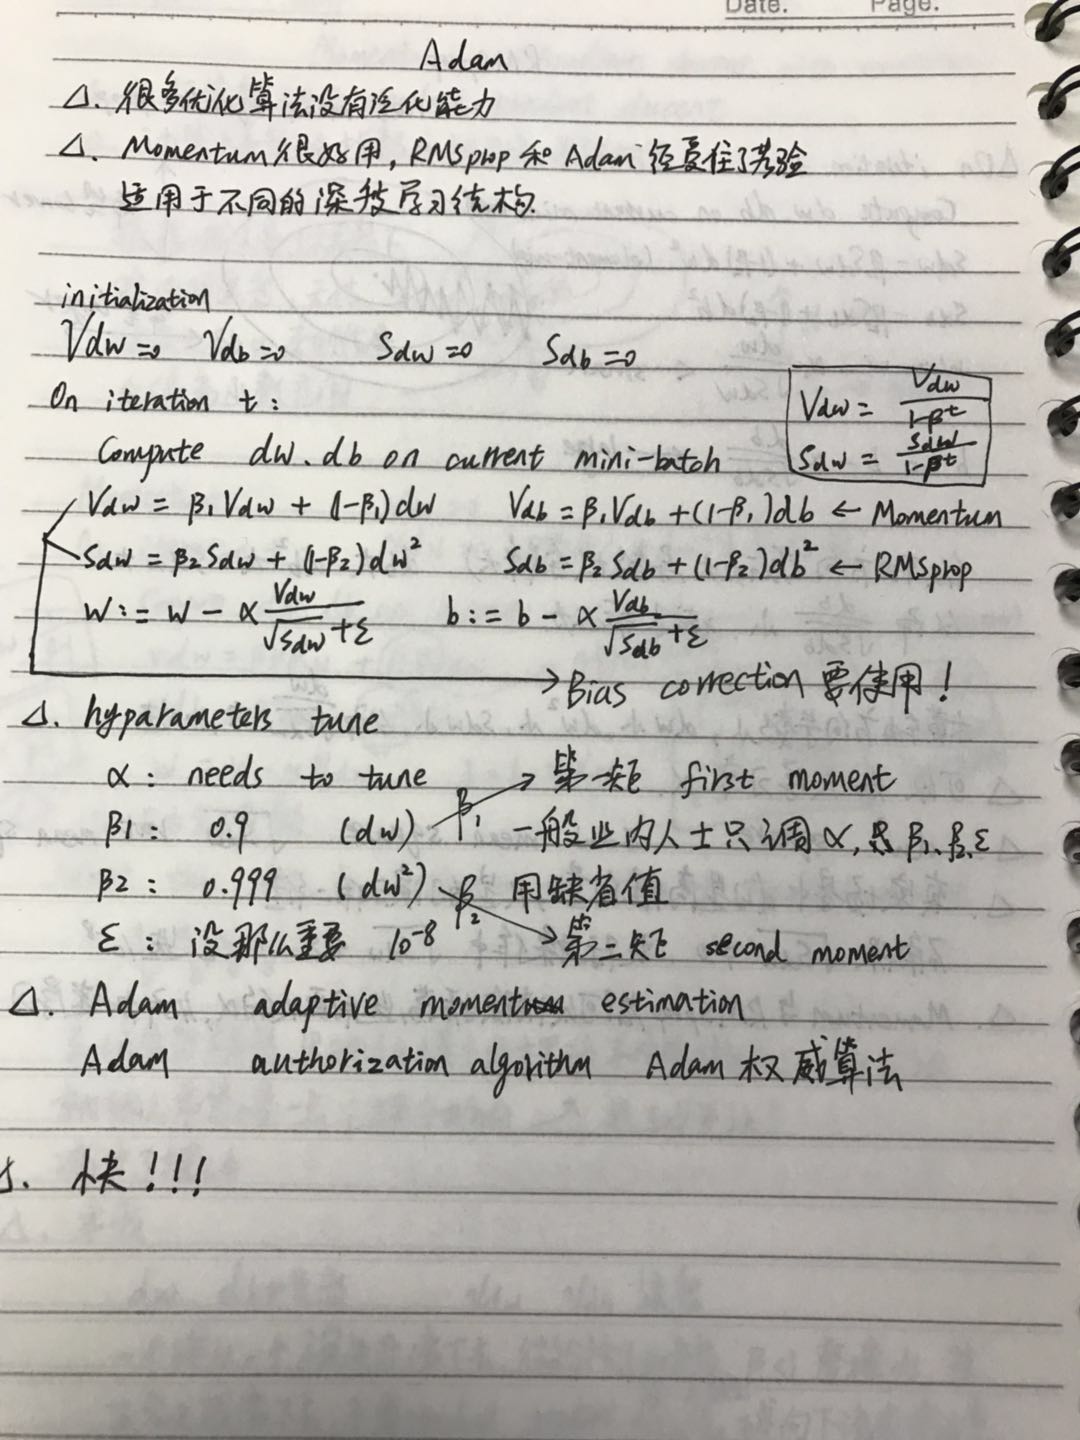 Date.    Page.
Adam
△. 很多优化算法没有泛化能力
△. Momentum 很好用, RMSprop 和 Adam 经受住了考验
适用于不同的深度学习结构.
initialization
Vdw=0  Vdb=0  Sdw=0  Sdb=0
On iteration t:
Vdw = Vdw/(1-β^t)
Compute dw. db on current mini-batch
Sdw = Sdw/(1-β^t)
Vdw = β₁Vdw + (1-β₁)dw  Vdb = β₁Vdb + (1-β₁)db ← Momentum
Sdw = β₂Sdw + (1-β₂)dw²  Sdb = β₂Sdb + (1-β₂)db² ← RMSprop
w := w - α Vdw/(√Sdw+ε)  b := b - α Vdb/(√Sdb+ε)
→ Bias correction 要使用!
△. hyparameters tune
α: needs to tune → 第一矩 first moment
β1: 0.9 (dw) β₁ 一般业内人士只调α, β₁、β₂、ε
β2: 0.999 (dw²) β₂ 用缺省值
ε: 没那么重要 10⁻⁸ → 第二矩 second moment
△. Adam adaptive moment estimation
Adam authorization algorithm Adam 权威算法
快!!!